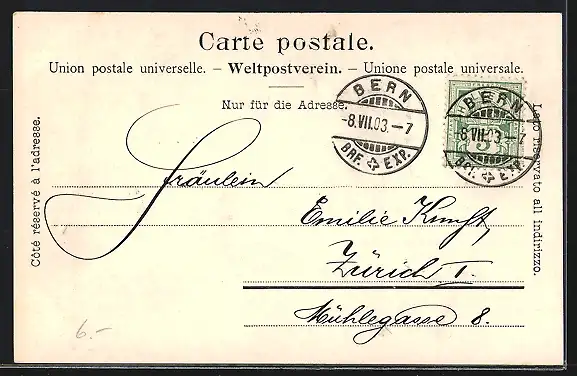 Carte postale.
Union postale universelle. – Weltpostverein. – Unione postale universale.
Nur für die Adresse.
BERN
-8.VII.03.–7
BRF. EXP.
BERN
-8.VII.03.–7
BRF. EXP.
5
Côté réservé à l'adresse.
Lato riservato all indirizzo.
Fräulein
Emilie Kunst,
Zürich I.
Mühlegasse 8.
6.-